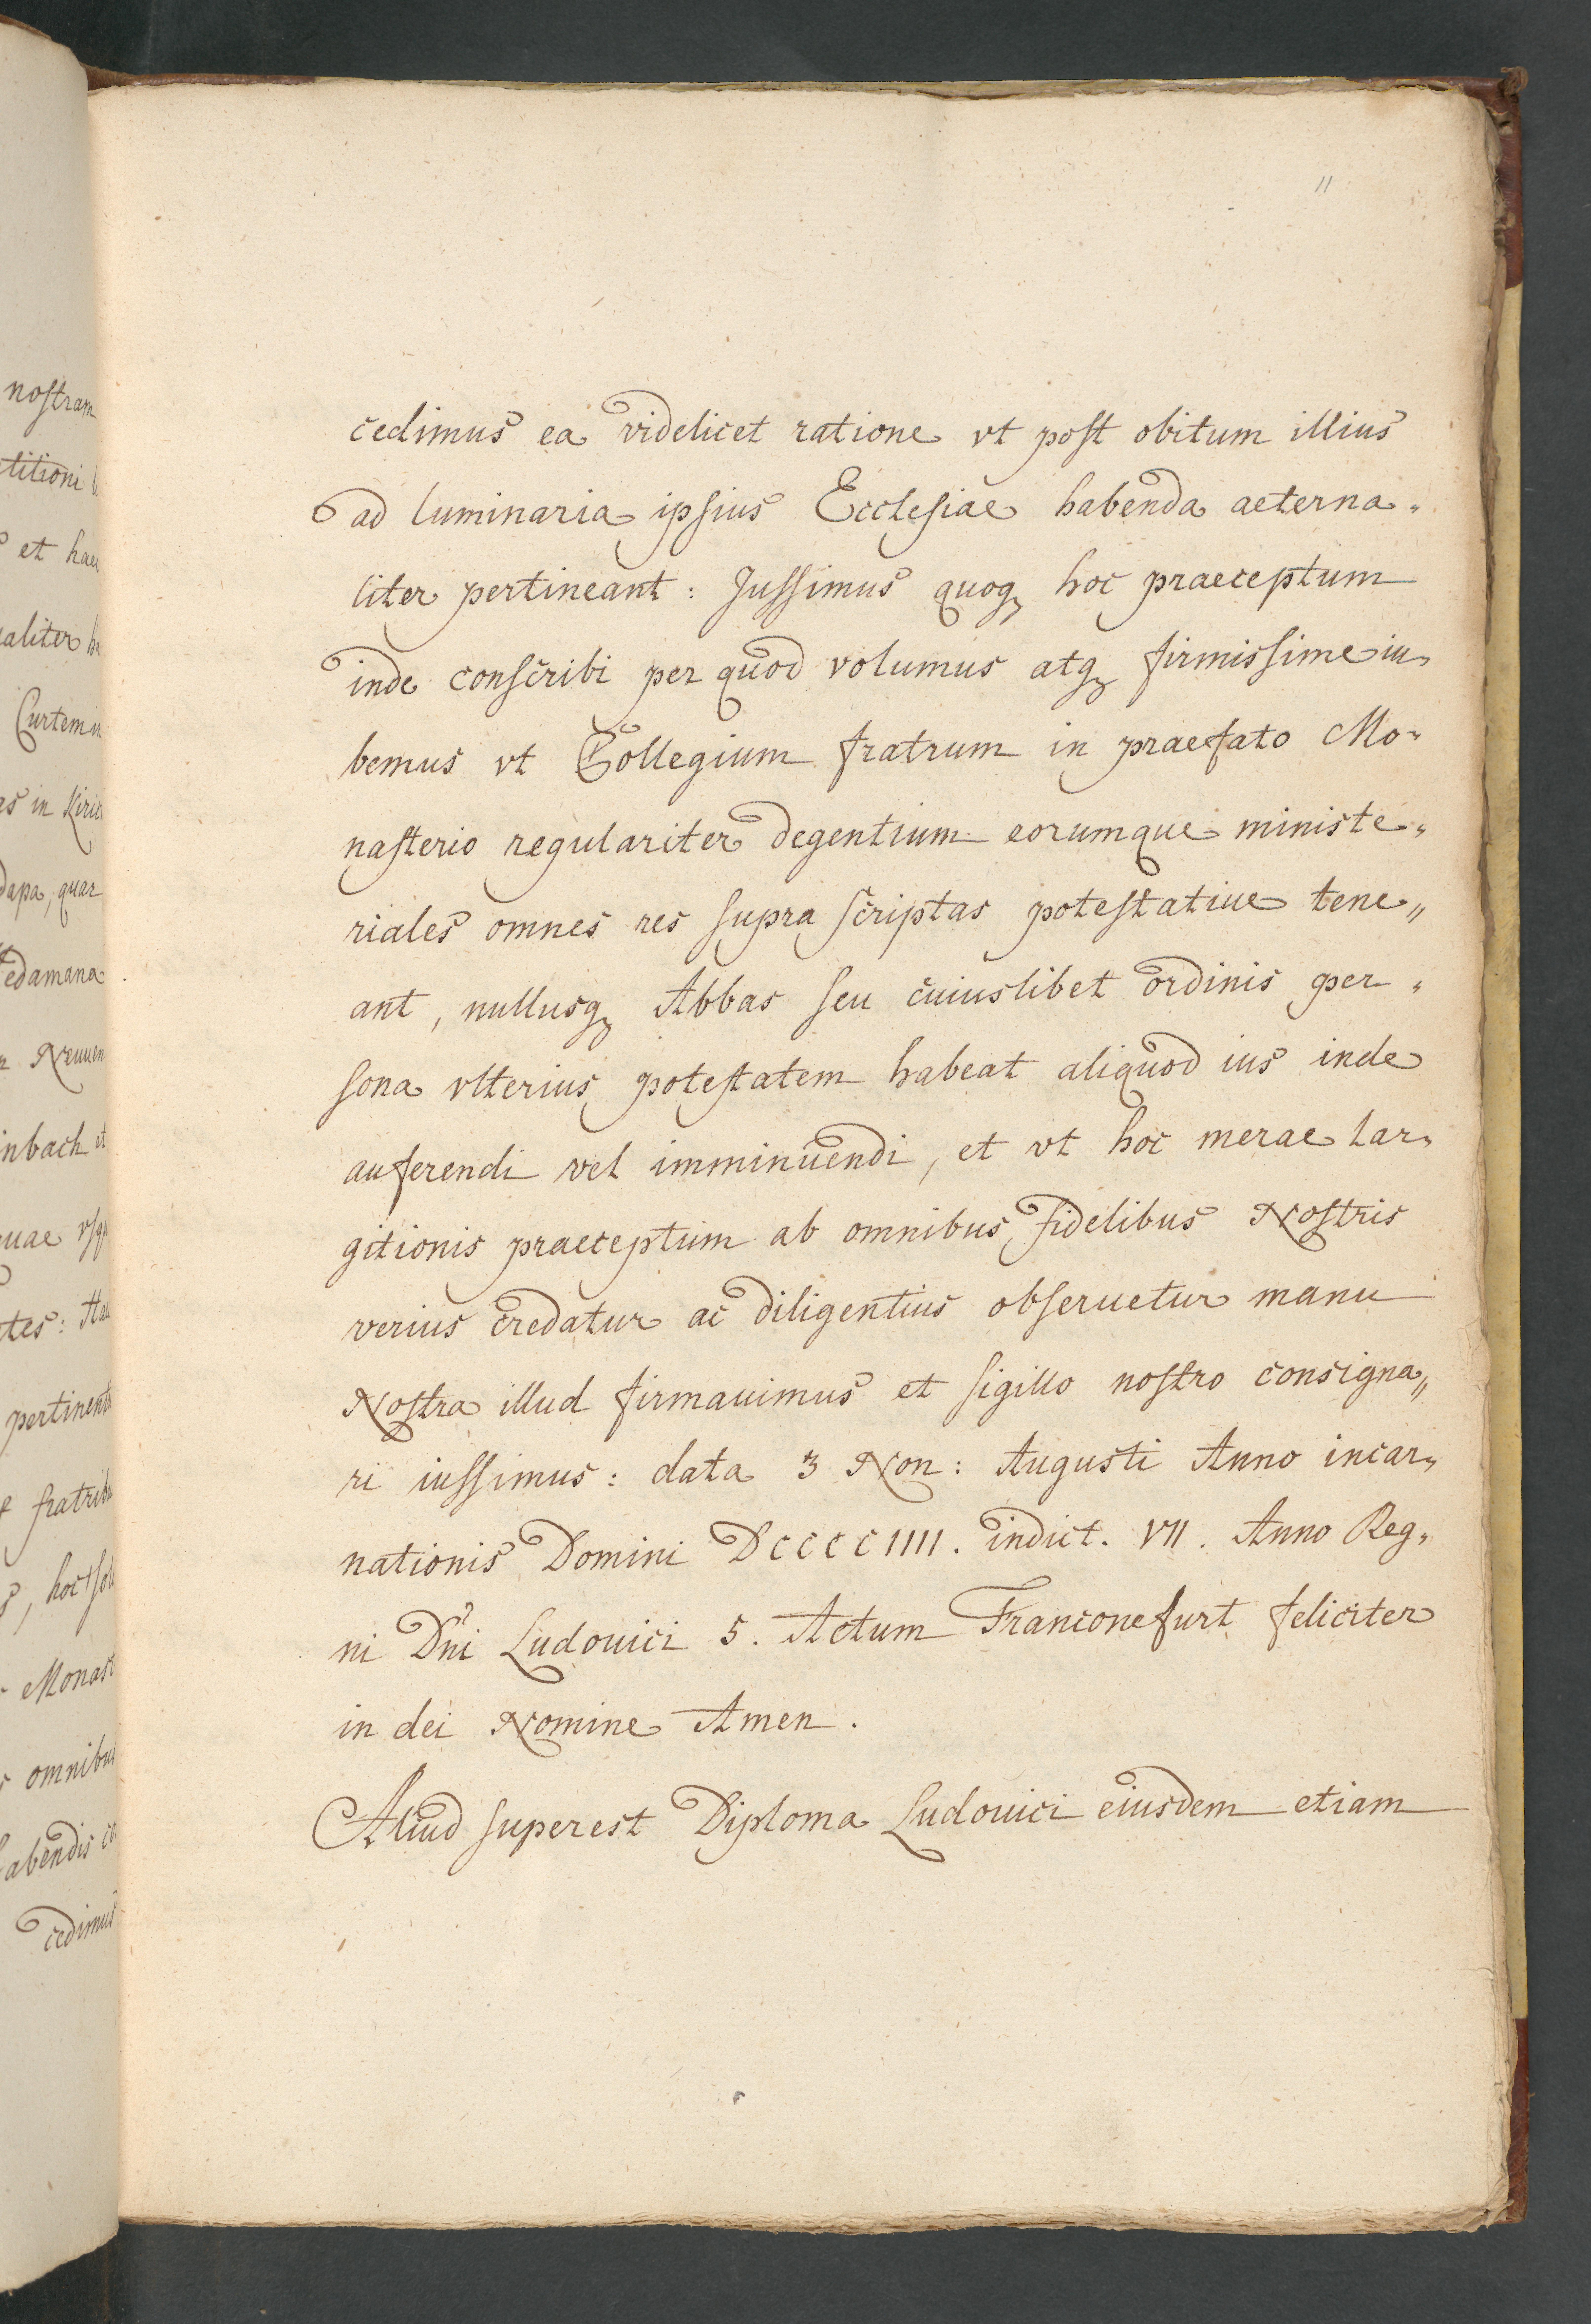 11
cedimus ea videlicet ratione vt post obitum illius
ad luminaria ipsius Ecclesiae habenda aeterna„
liter pertineant : Jussimus quoq₃ hoc praeceptum
inde conscribi per quod volumus atq₃ firmissime iu„
bemus vt Collegium fratrum in praefato Mo„
nasterio regulariter degentium eorumque ministe„
riales omnes res supra scriptas potestatiue tene„
ant, nullusq₃ Abbas seu cuiuslibet ordinis per„
sona vlterius potestatem habeat aliquod ius inde
auferendi vel imminuendi, et vt hoc merae lar„
gitionis praeceptum ab omnibus fidelibus Nostris
verius credatur ac diligentius obseruetur manu
Nostra illud firmauimus et sigillo nostro consigna„
ri iussimus : data 3 Non : Augusti Anno incar„
nationis Domini DCCCCIIII. indict. VII. Anno Reg„
ni Dñi Ludouici 5. Actum Franconefurt feliciter
in dei Nomine Amen.
Aliud superest Diploma Ludouici eiusdem etiam
nostram
titioni
et
aliter
Curtem in
as in
dapa, quar
edamana
inbach et
uae
tes :
pertinent
fratrib
Monast
omnibus
abendis
cedimus